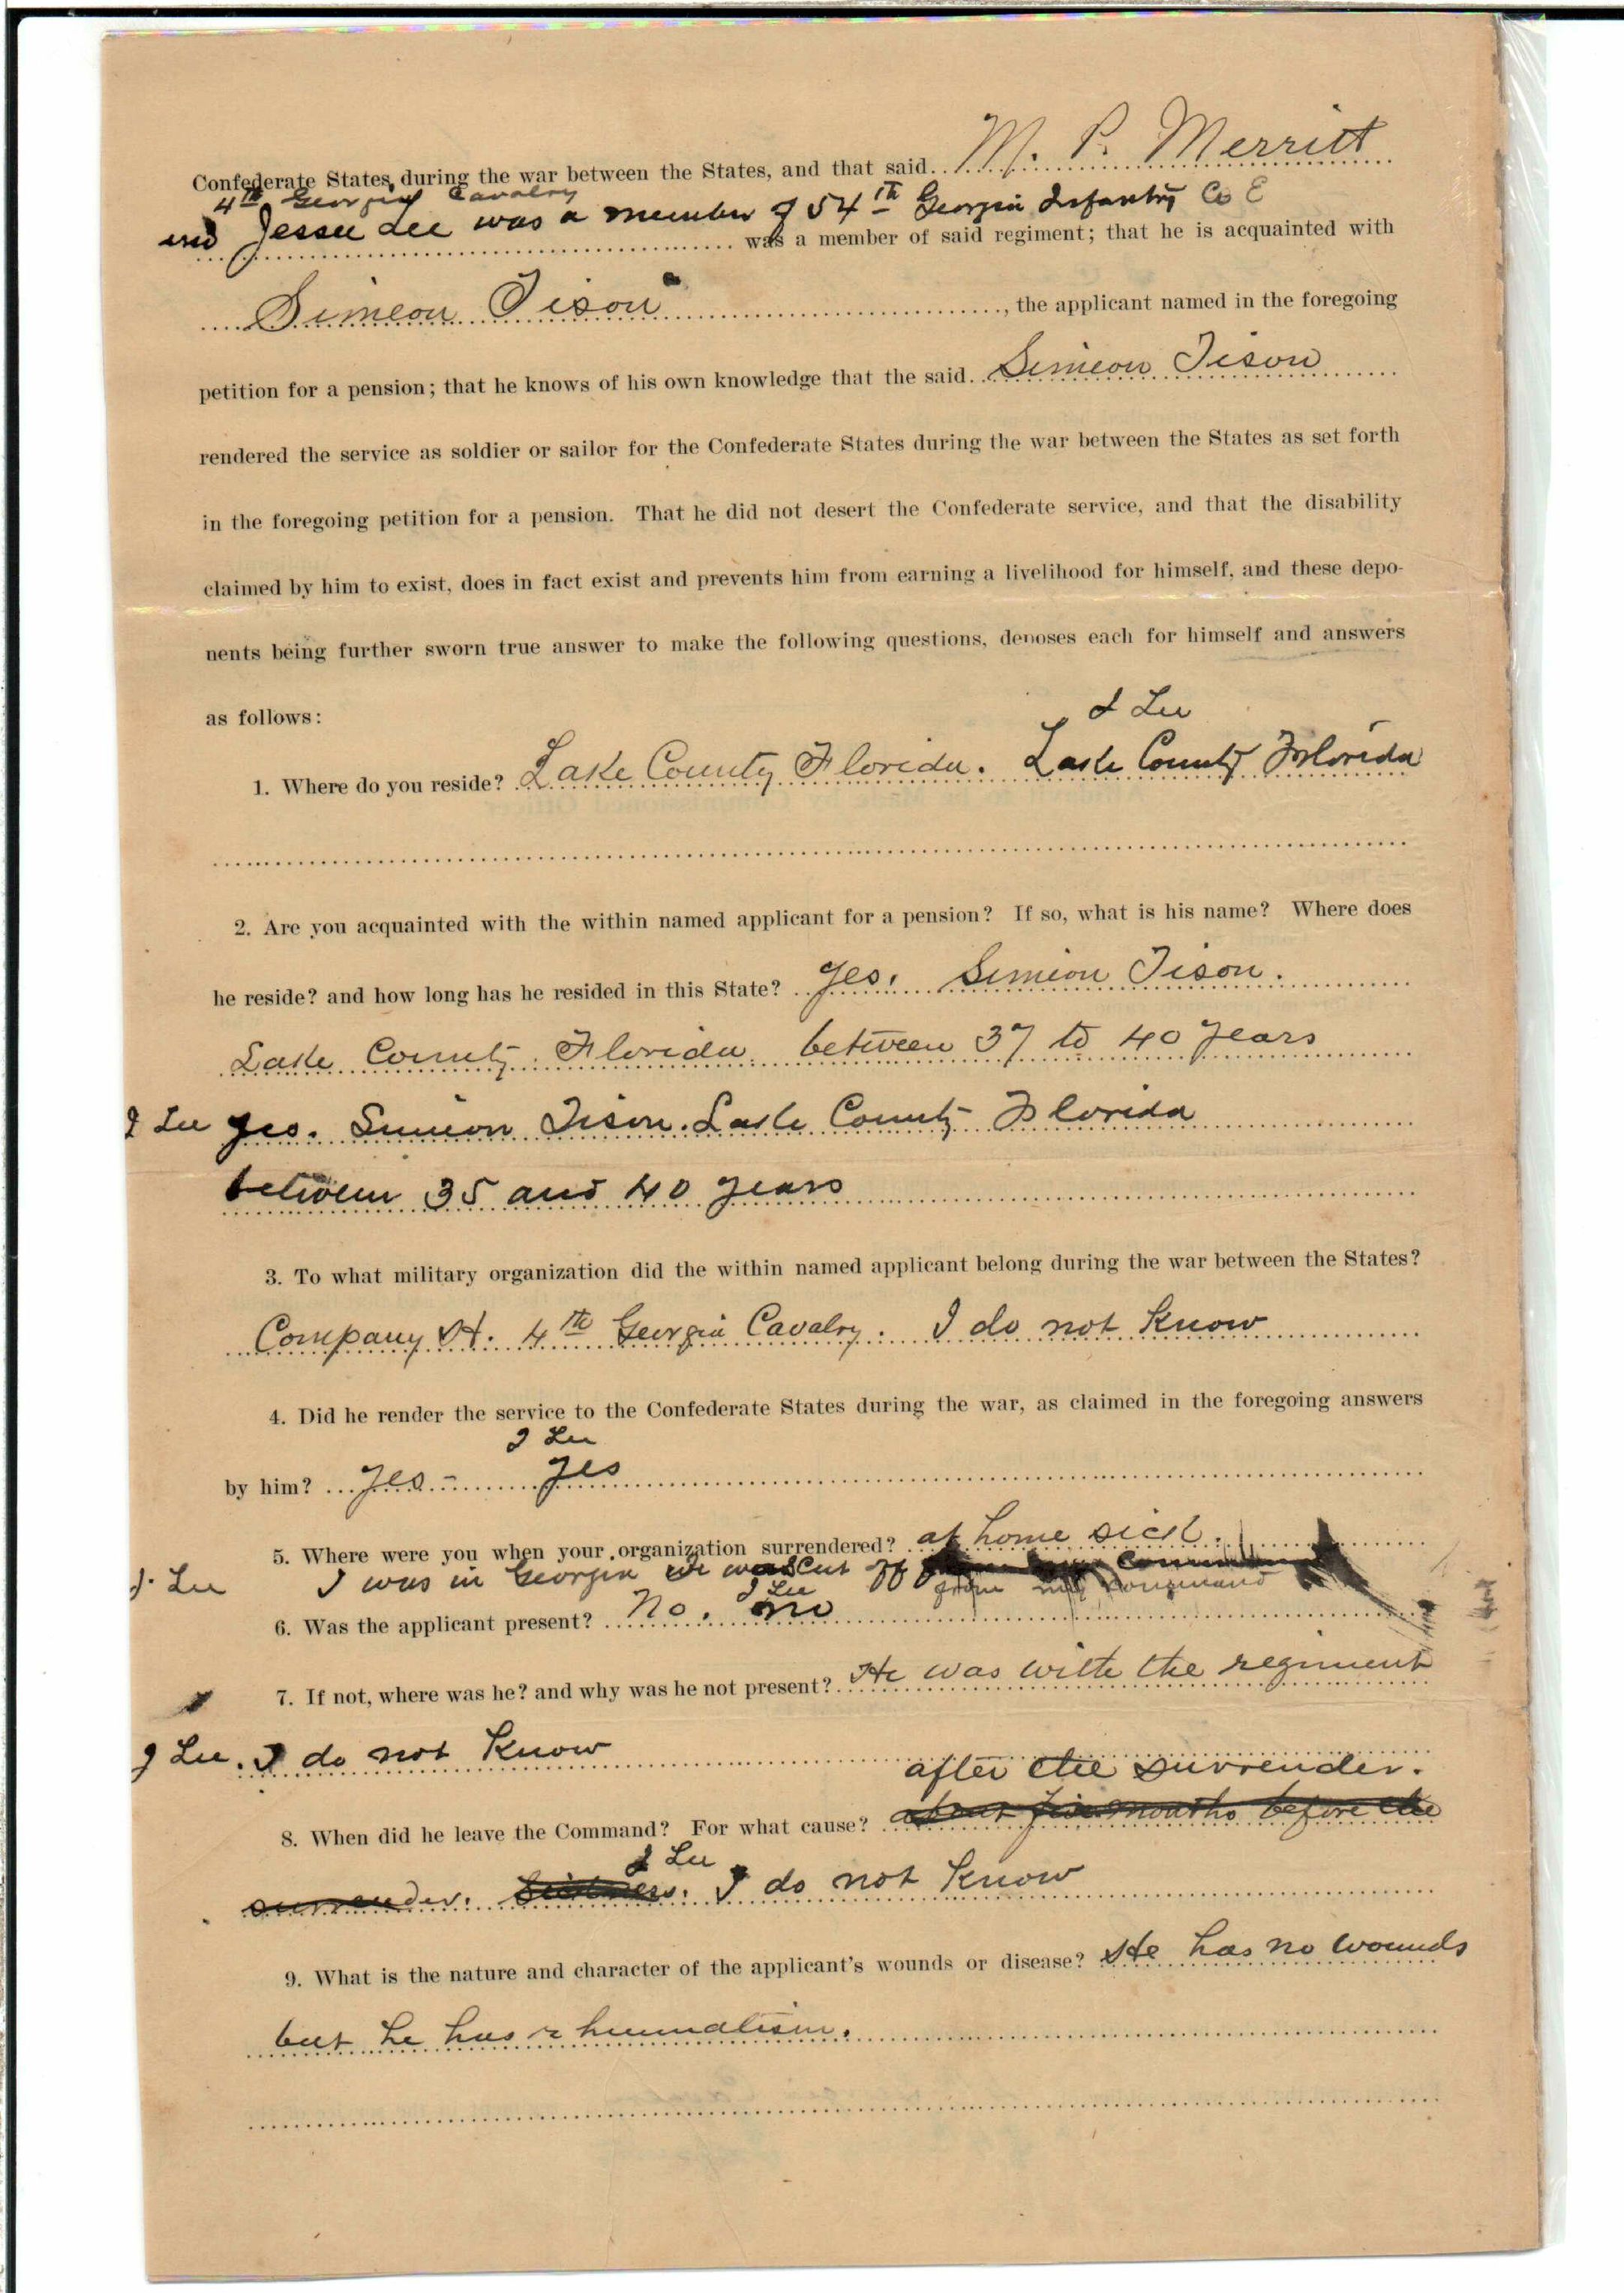 Confederate States, during the war between the States, and that said M. P. Merritt
4th Georgia Cavalry
and Jessee Lee was a member of 54th Georgia Infantry Co E
was a member of said regiment; that he is acquainted with
Simeon Tison, the applicant named in the foregoing
petition for a pension; that he knows of his own knowledge that the said Simeon Tison
rendered the service as soldier or sailor for the Confederate States during the war between the States as set forth
in the foregoing petition for a pension. That he did not desert the Confederate service, and that the disability
claimed by him to exist, does in fact exist and prevents him from earning a livelihood for himself, and these depo-
nents being further sworn true answer to make the following questions, deposes each for himself and answers
as follows:
J Lee
1. Where do you reside? Lake County Florida. Lake County Florida
2. Are you acquainted with the within named applicant for a pension? If so, what is his name? Where does
he reside? and how long has he resided in this State? Yes. Simeon Tison.
Lake County Florida between 37 to 40 years
J Lee yes. Simeon Tison. Lake County Florida
between 35 and 40 years
3. To what military organization did the within named applicant belong during the war between the States?
Company H. 4th Georgia Cavalry. I do not know
4. Did he render the service to the Confederate States during the war, as claimed in the foregoing answers
J Lee
by him? yes - yes
5. Where were you when your organization surrendered? at home sick.
J. Lee I was in Georgia cut off from my command
J Lee
6. Was the applicant present? No. no
7. If not, where was he? and why was he not present? He was with the regiment
J Lee. I do not know
after the surrender.
8. When did he leave the Command? For what cause? about five months before the
J Lee
surrender. Sickness. I do not know
9. What is the nature and character of the applicant's wounds or disease? He has no wounds
but he has rheumatism.